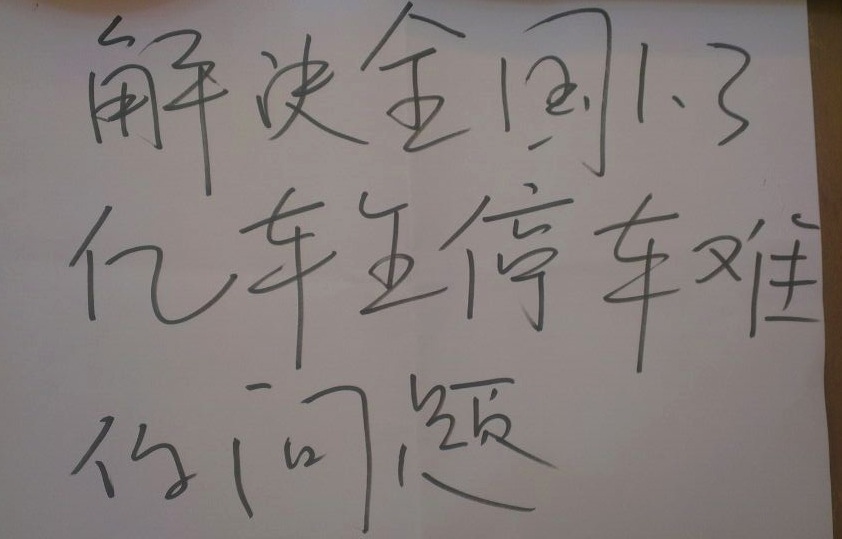 解决全国1.3
亿车主停车难
的问题